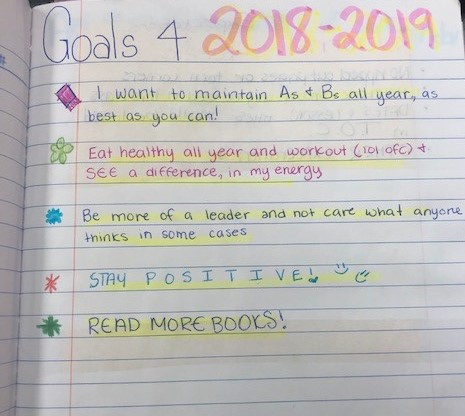 Goals 4 2018-2019
I want to maintain As & Bs all year, as
best as you can!
Eat healthy all year and workout (lol ofc) &
SEE a difference, in my energy
Be more of a leader and not care what anyone
thinks in some cases
STAY POSITIVE!
READ MORE BOOKS!